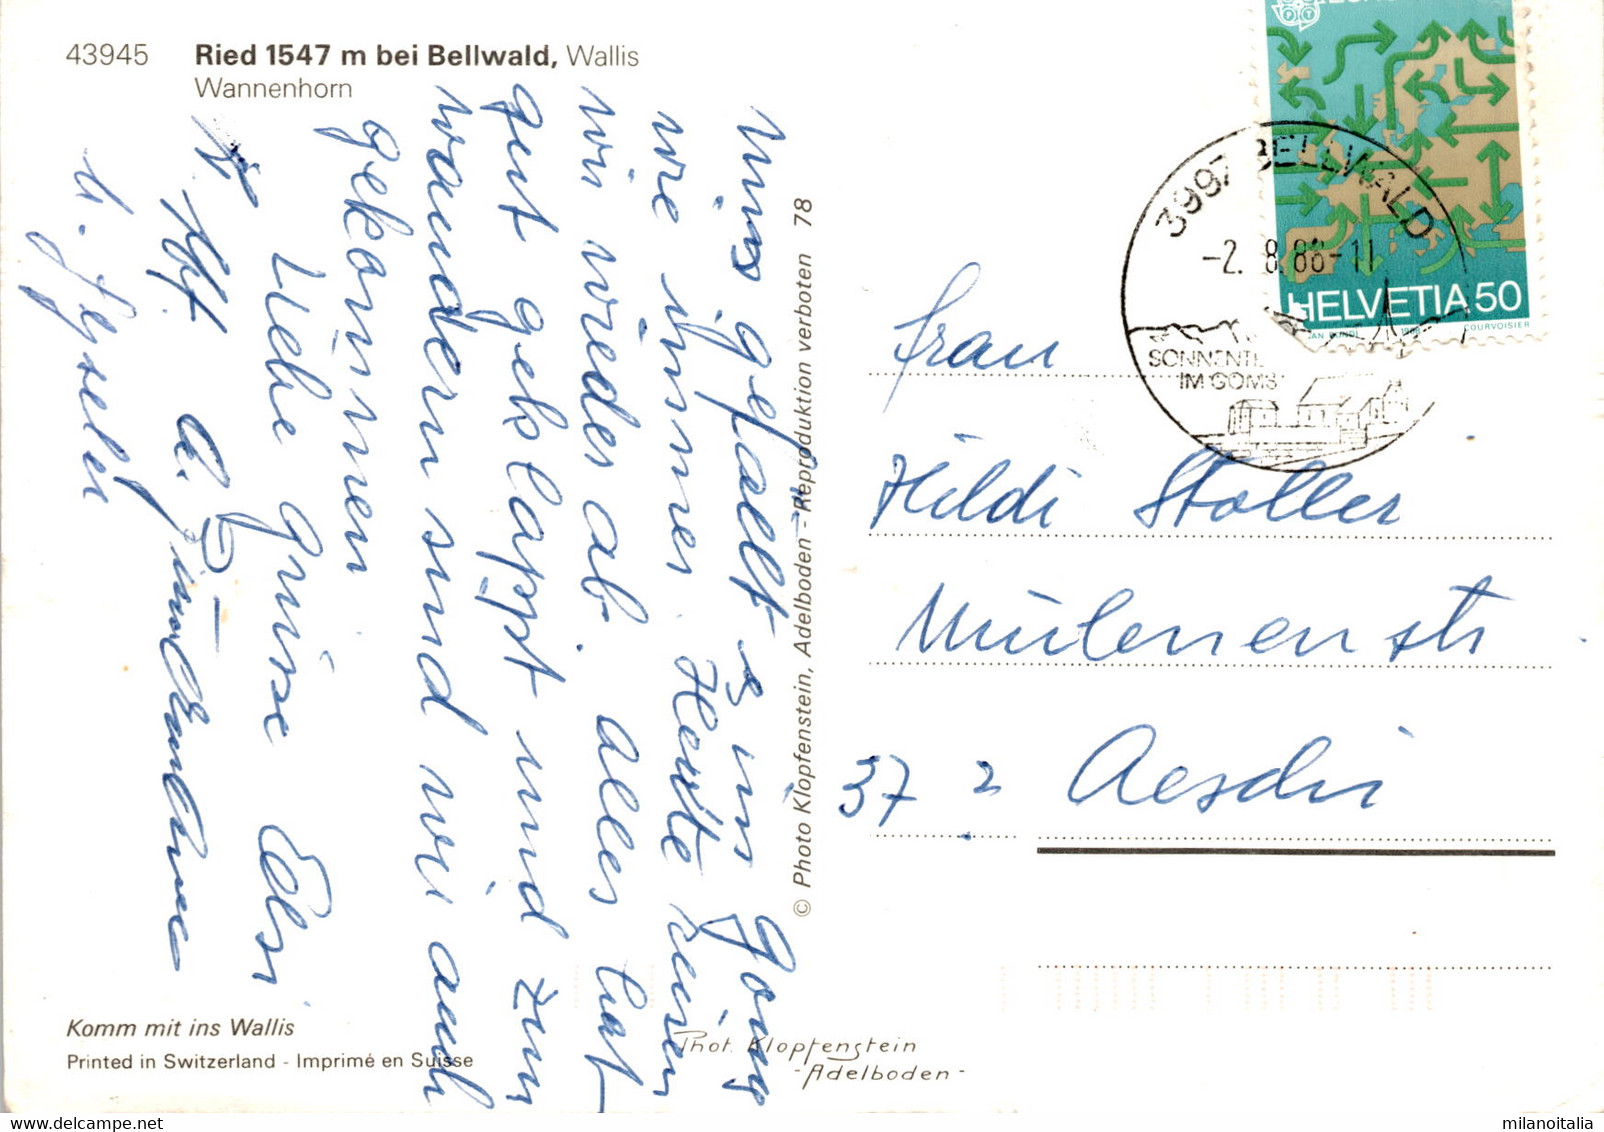 43945 Ried 1547 m bei Bellwald, Wallis
Wannenhorn
Uns gefällt es im Goms
wie immer. Heute reisen
wir wieder ab. Alles hat
gut geklappt und zum
wandern sind wir auch
gekommen
Liebe Grüsse Edi
u.
© Photo Klopfenstein, Adelboden - Reproduktion verboten 78
EUROPA
HELVETIA 50
COURVOISIER
3997 BELLWALD
-2. 8. 88-11
SONNENTE
IM GOMS
Frau
Hildi Stoller
Mülenenstr
37 2 Aeschi
Komm mit ins Wallis
Printed in Switzerland - Imprimé en Suisse
Phot. Klopfenstein
- Adelboden -
milanoitalia